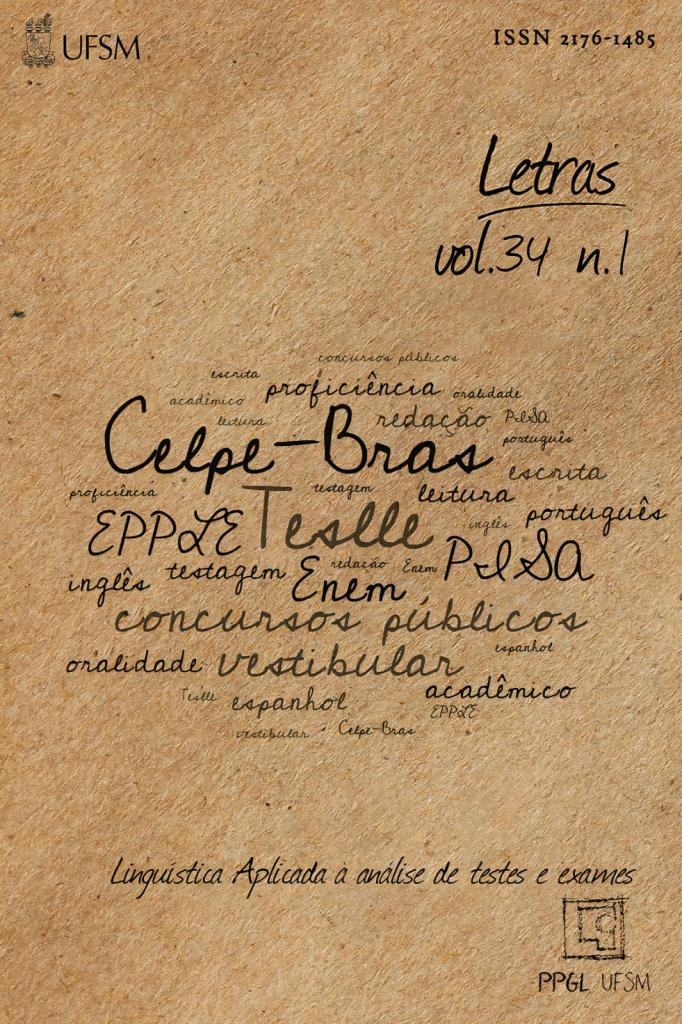 UFSM
ISSN 2176-1485
Letras
vol.34 n.1
concursos públicos
escrita
proficiência
oralidade
acadêmico
leitura
redação
PISA
Celpe-Bras
português
escrita
proficiência
testagem
leitura
EPPLE
Teslle
inglês
português
inglês
testagem
redação
Enem
PISA
Enem
concursos públicos
oralidade
vestibular
espanhol
Teslle
espanhol
acadêmico
EPPLE
vestibular
Celpe-Bras
Linguística Aplicada à análise de testes e exames
PPGL UFSM